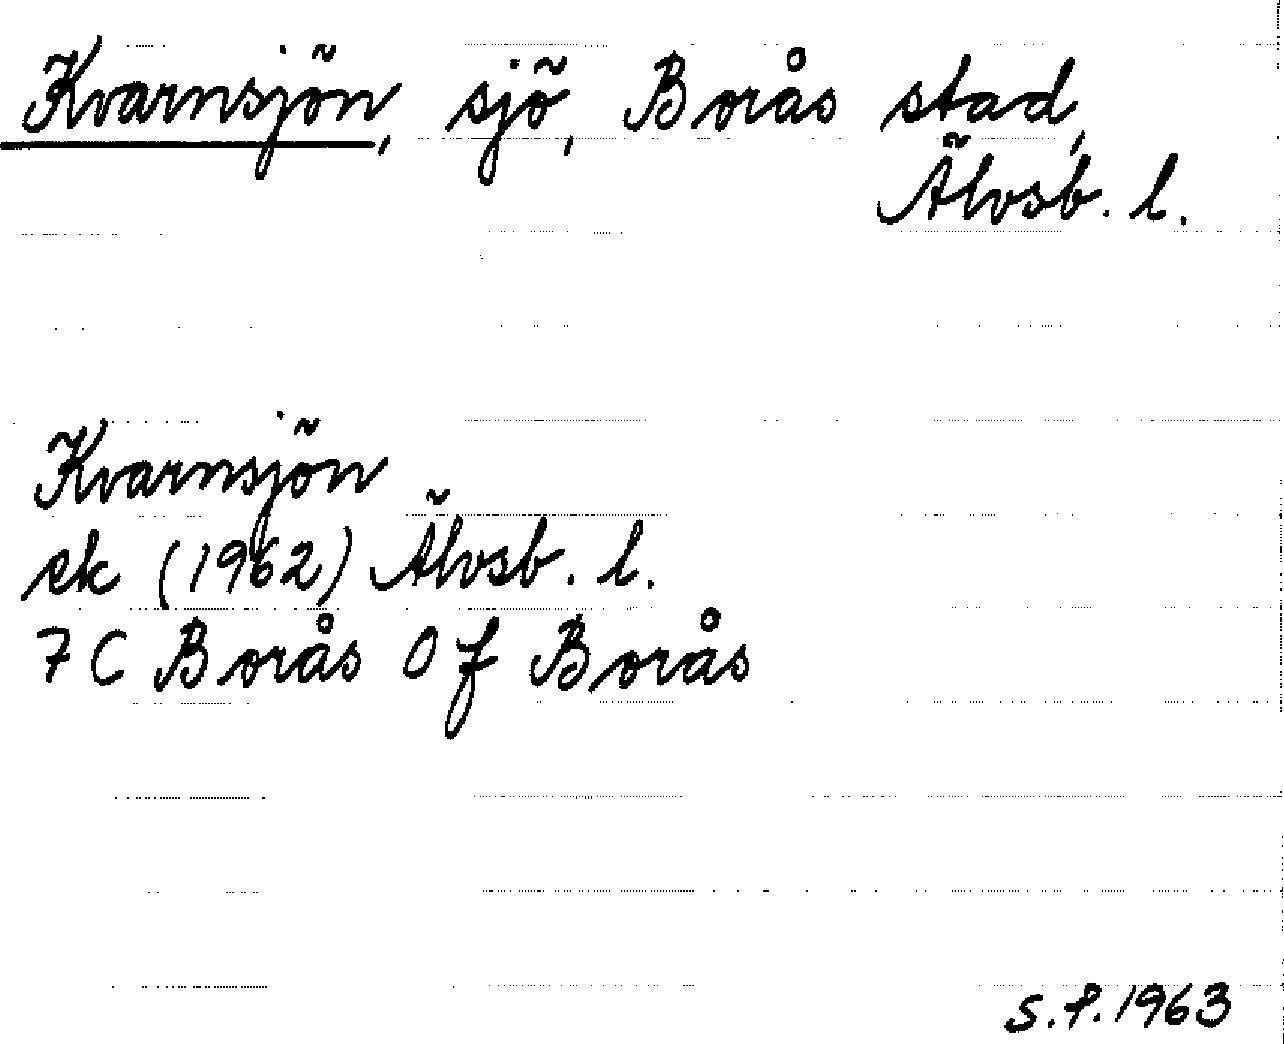 Kvarnsjön, sjö, Borås stad,
Älvsb. l.
Kvarnsjön
ek (1962) Älvsb. l.
7 C Borås 0 f Borås
S.P. 1963